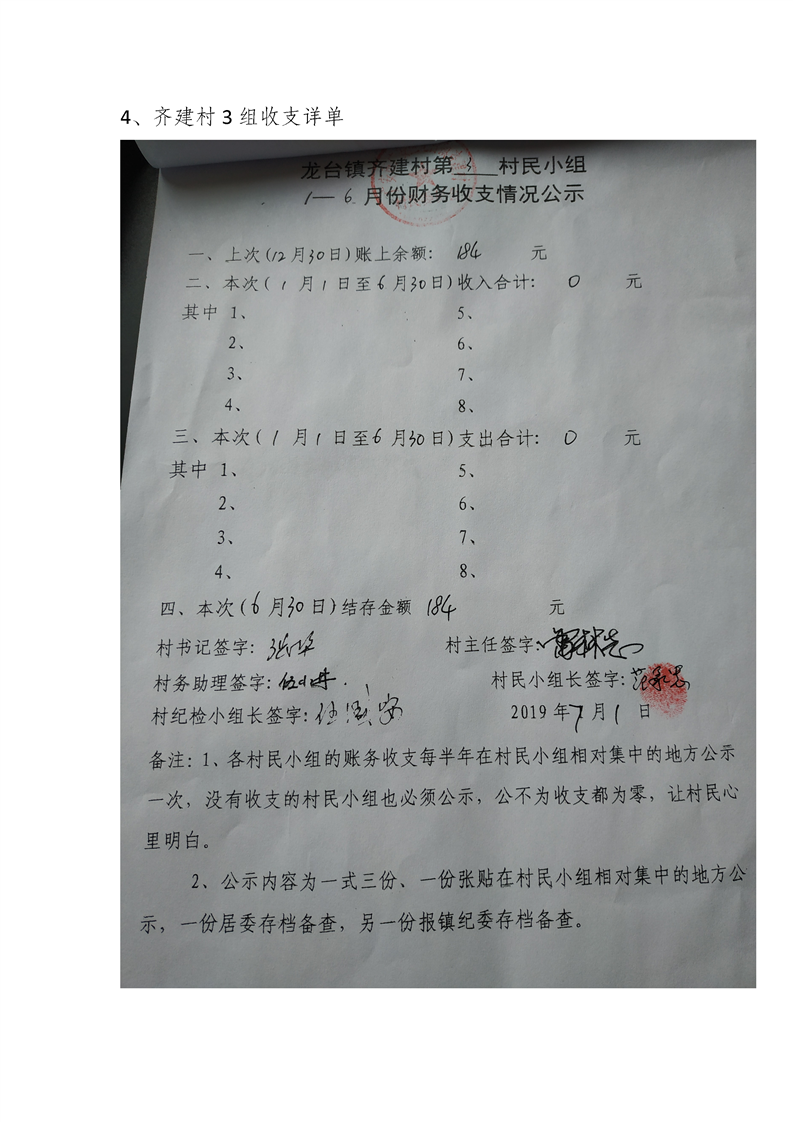 4、齐建村 3 组收支详单
龙台镇齐建村第 3 村民小组
1—6 月份财务收支情况公示
一、上次(12月30日)账上余额: 184 元
二、本次( 1 月 1 日至 6 月30日)收入合计: 0 元
其中 1、 5、
2、 6、
3、 7、
4、 8、
三、本次( 1 月 1 日至 6 月30日)支出合计: 0 元
其中 1、 5、
2、 6、
3、 7、
4、 8、
四、本次( 6 月30日)结存金额 184 元
村书记签字: 村主任签字:
村务助理签字: 村民小组长签字:
村纪检小组长签字: 2019 年 7 月 1 日
备注:1、各村民小组的账务收支每半年在村民小组相对集中的地方公示
一次，没有收支的村民小组也必须公示，公不为收支都为零，让村民心
里明白。
2、公示内容为一式三份、一份张贴在村民小组相对集中的地方公
示，一份居委存档备查，另一份报镇纪委存档备查。